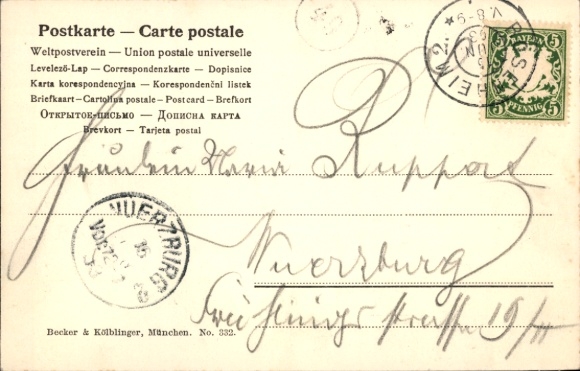 Postkarte — Carte postale
Weltpostverein — Union postale universelle
Levelező-Lap — Correspondenzkarte — Dopisnice
Karta korespondencyjna — Korespondenční listek
Briefkaart — Cartolina postale — Postcard — Brefkort
Открытое-письмо — Дописна карта
Brevkort — Tarjeta postal
BAYERN
5 5
PFENNIG
HEIM 2.
V. 8-9
Fräulein Maria Ruppert
WUERZBURG
Wuerzburg
Frühlingsstrasse 19/II
Becker & Kölblinger, München. No. 332.